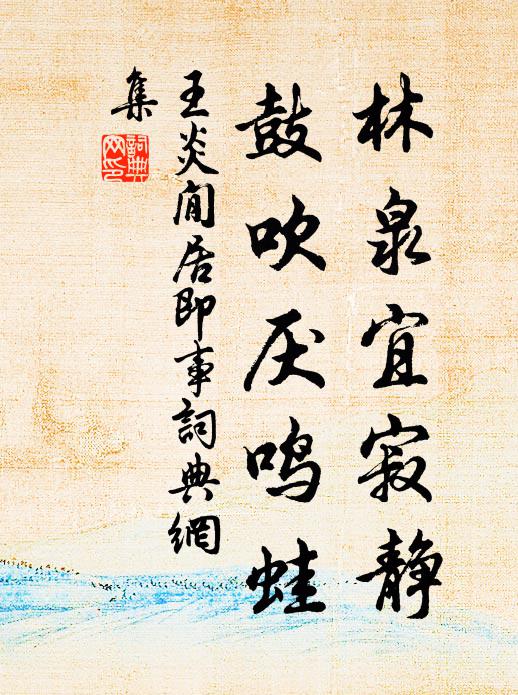 林泉宜寂静
鼓吹厌鸣蛙
王炎闲居即事詞典網
集
詞典網印